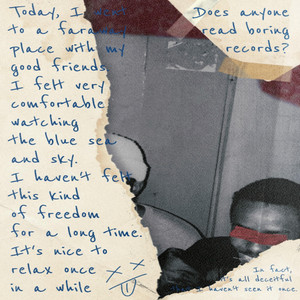 Today, I went
to a faraway
place with my
good friends.
I felt very
comfortable
watching
the blue sea
and sky.
I haven't felt
this kind
of freedom
for a long time.
It's nice to
relax once
in a while
Does anyone
read boring
records?
In fact,
it's all deceitful
I haven't seen it once.